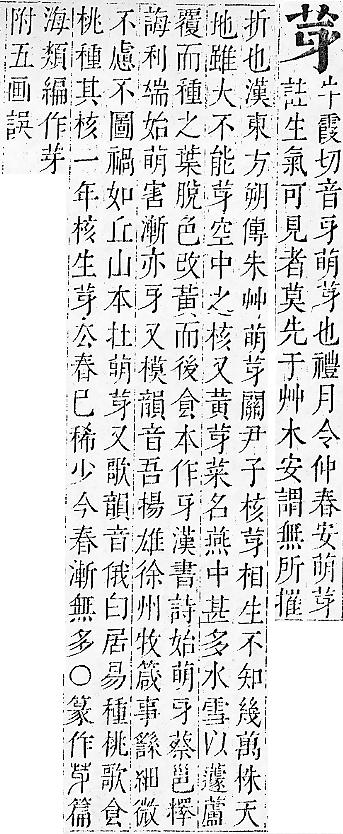 芽
牛霞切音牙萌芽也禮月令仲春安萌芽
註生氣可見者莫先于艸木安謂無所摧
折也漢東方朔傳朱艸萌芽關尹子核芽相生不知幾萬株天
地雖大不能芽空中之核又黃芽菜名燕中甚多水雪以蘧蘆
覆而種之葉脫色改黃而後食本作牙漢書詩始萌牙蔡邕釋
誨利端始萌害漸亦牙又模韻音吾楊雄徐州牧箴事繇細微
不慮不圖禍如丘山本在萌芽又歌韻音俄白居易種桃歌食
桃種其核一年核生芽厺春已稀少今春漸無多〇篆作芽篇
海類編作芽
附五画誤